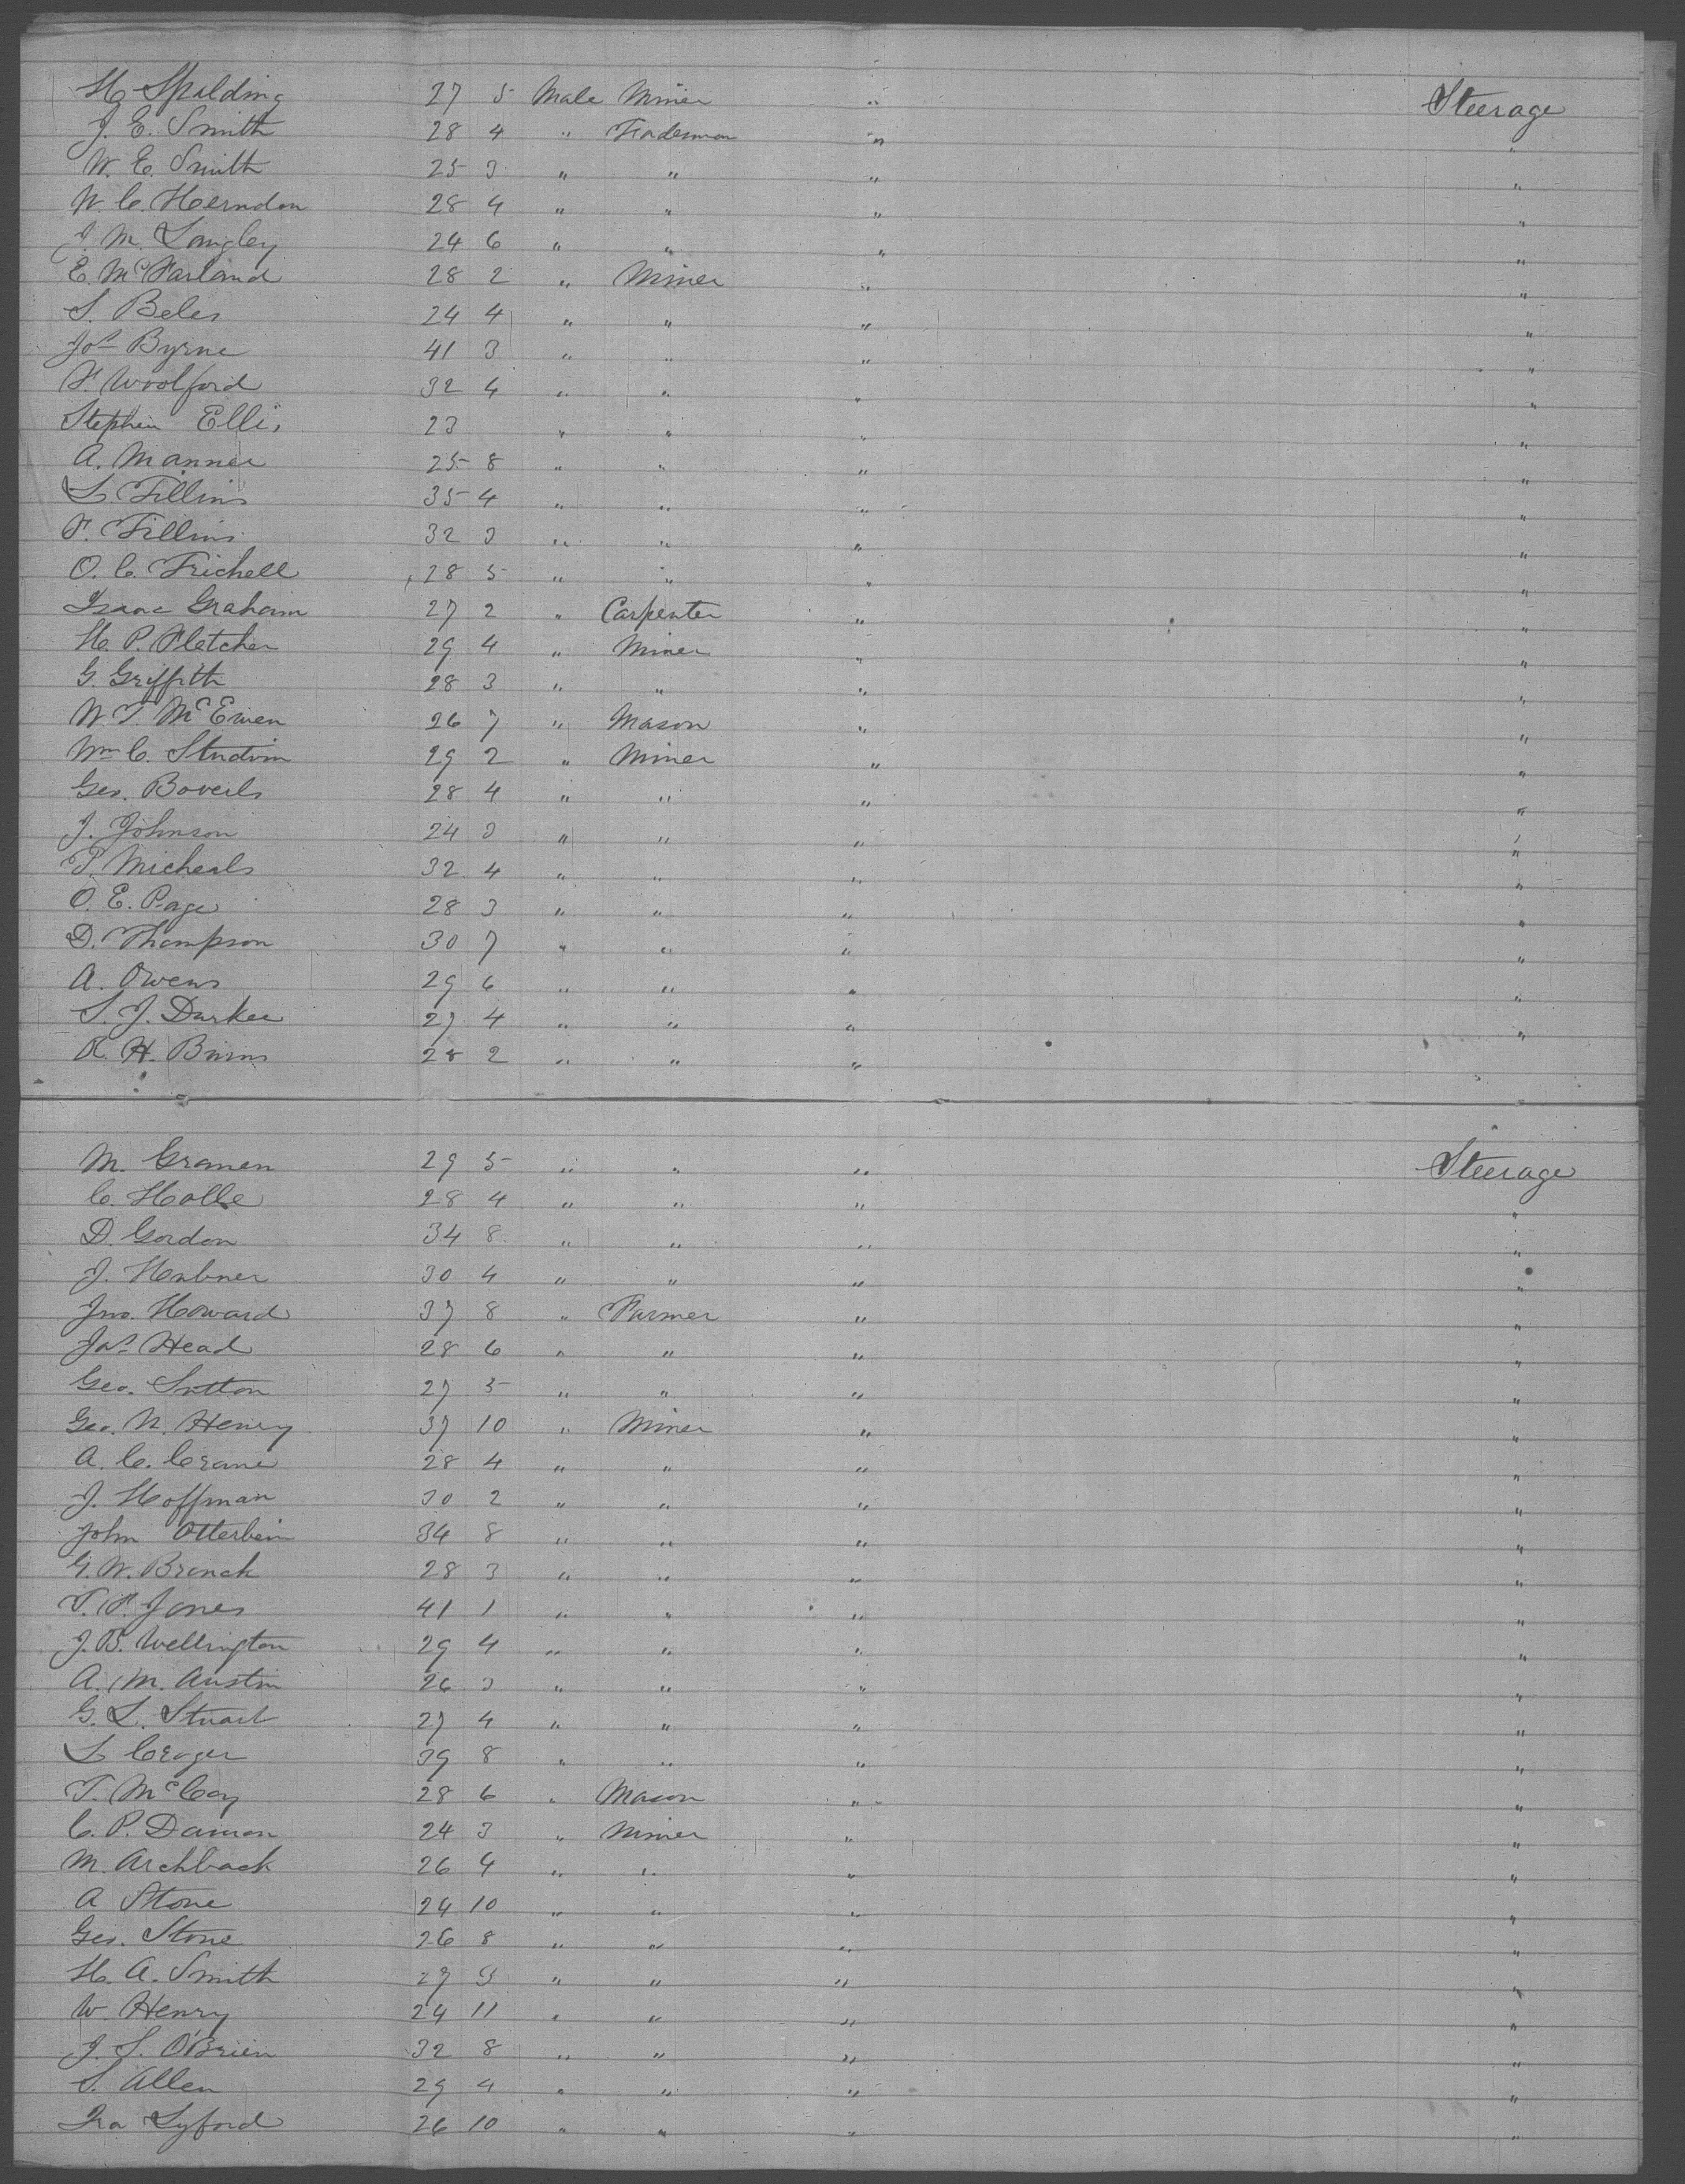 H. Spalding 27 5 Male Miner " Steerage
J. E. Smith 28 4 " Tradesman " "
W. E. Smith 25 3 " " " "
W. C. Herndon 28 4 " " " "
J. M. Longley 24 6 " " " "
E. McFarland 28 2 " Miner " "
S. Beles 24 4 " " " "
Jos Byrne 41 3 " " " "
F. Woolford 32 4 " " " "
Stephen Ellis 23 " " " "
A. Manner 25 8 " " " "
L. Fillins 35 4 " " " "
F. Fillins 32 3 " " " "
O. C. Frichell 28 5 " " " "
Isaac Graham 27 2 " Carpenter " "
H. P. Fletcher 29 4 " Miner " "
G. Griffith 28 3 " " " "
W. T. McEwen 26 7 " Mason " "
Wm C. Studvin 29 2 " Miner " "
Geo. Boverls 28 4 " " " "
J. Johnson 24 3 " " " "
P. Micheals 32 4 " " " "
O. E. Page 28 3 " " " "
D. Thompson 30 7 " " " "
A. Owens 29 6 " " " "
S. J. Durkee 27 4 " " " "
R. H. Burns 28 2 " " "
M. Gramen 29 5 " " " Steerage
C. Halle 28 4 " " " "
D. Gordon 34 8 " " " "
J. Habner 30 4 " " " "
Jno. Howard 37 8 " Farmer " "
Jas Head 28 6 " " " "
Geo. Sutton 27 5 " " " "
Geo. N. Henry 37 10 " Miner " "
A. C. Crane 28 4 " " " "
J. Hoffman 30 2 " " " "
John Otterbein 34 8 " " " "
G. W. Branch 28 3 " " " "
T. F. Jones 41 1 " " " "
J. B. Wellington 29 4 " " " "
A. M. Austin 26 3 " " " "
G. L. Stuart 27 4 " " " "
L Croger 39 8 " " " "
T. McCoy 28 6 " Mason " "
C. P. Damon 24 3 " Miner " "
M. Archback 26 4 " " " "
A Stone 24 10 " " " "
Geo. Stone 26 8 " " " "
H. A. Smith 27 9 " " " "
W. Henry 24 11 " " " "
J. S. O'Brien 32 8 " " " "
S. Allen 29 4 " " " "
Ira Lyford 26 10 " " " "